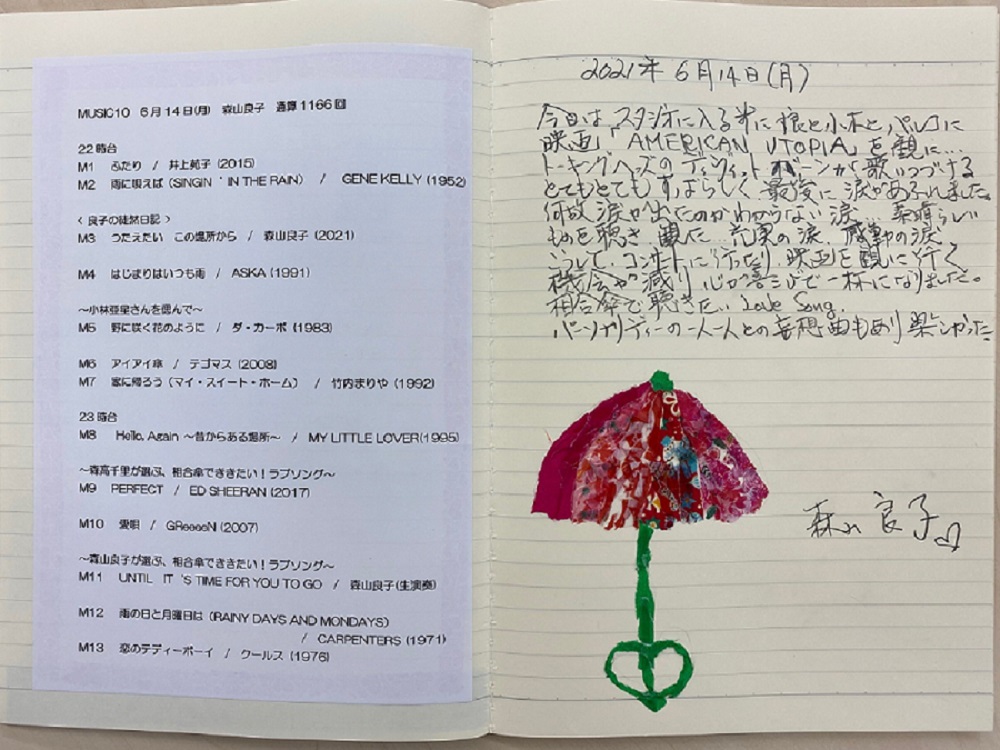 MUSIC10 6月14日(月) 森山良子 通算1166回
22時台
M1 ふたり / 井上苑子(2015)
M2 雨に唄えば(SINGIN 'IN THE RAIN) / GENE KELLY(1952)
<良子の徒然日記>
M3 うたえたい この場所から / 森山良子(2021)
M4 はじまりはいつも雨 / ASKA(1991)
～小林亜星さんを偲んで～
M5 野に咲く花のように / ダ・カーポ(1983)
M6 アイアイ傘 / テゴマス(2008)
M7 家に帰ろう(マイ・スイート・ホーム) / 竹内まりや(1992)
23時台
M8 Hello, Again ～昔からある場所～ / MY LITTLE LOVER(1995)
～森高千里が選ぶ、相合傘でききたい!ラブソング～
M9 PERFECT / ED SHEERAN(2017)
M10 愛唄 / GReeeeN(2007)
～森山良子が選ぶ、相合傘でききたい!ラブソング～
M11 UNTIL IT 'S TIME FOR YOU TO GO / 森山良子(生演奏)
M12 雨の日と月曜日は(RAINY DAYS AND MONDAYS)
/ CARPENTERS(1971)
M13 恋のテディーボーイ / クールス(1976)
2021年 6月14日(月)
今日は スタジオに入る前に 娘と小木と パルコに
映画「AMERICAN UTOPIA」を観に…
トーキングヘッズの デイヴィッド バーンが 歌いつづける
とてもとても すばらしく 最後に 涙があふれました。
何故 涙が出たのか わからない 涙… 素晴らしい
ものを聴き 観た… 充実の涙、感動の涙
こうして、コンサートに行ったり、映画を観に行く
機会が減り 心が喜びで一杯になりました。
相合傘で 聴きたい Love Song.
パーソナリティーの一人一人との妄想曲もあり 楽しかった
森山 良子